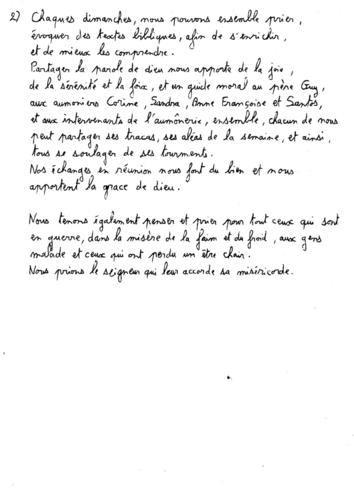 2) Chaques dimanches, nous pouvons ensemble prier,
évoquer des textes bibliques, afin de s'enrichir,
et de mieux les comprendre.
Partager la parole de dieu nous apporte de la joie,
de la sérénité et la foix, et un guide moral au père Guy,
aux aumoniers Corine, Sandra, Anne Françoise et Santos,
et aux intervenants de l'aumônerie, ensemble, chacun de nous
peut partager ses tracas, ses aléas de la semaine, et ainsi,
tous se soulager de ses tourments.
Nos échanges en réunion nous font du bien et nous
apportent la grace de dieu.
Nous tenons également penser et prier pour tout ceux qui sont
en guerre, dans la misère de la faim et du froid, aux gens
malade et ceux qui ont perdu un être chair.
Nous prions le seigneur qui leur accorde sa miséricorde.